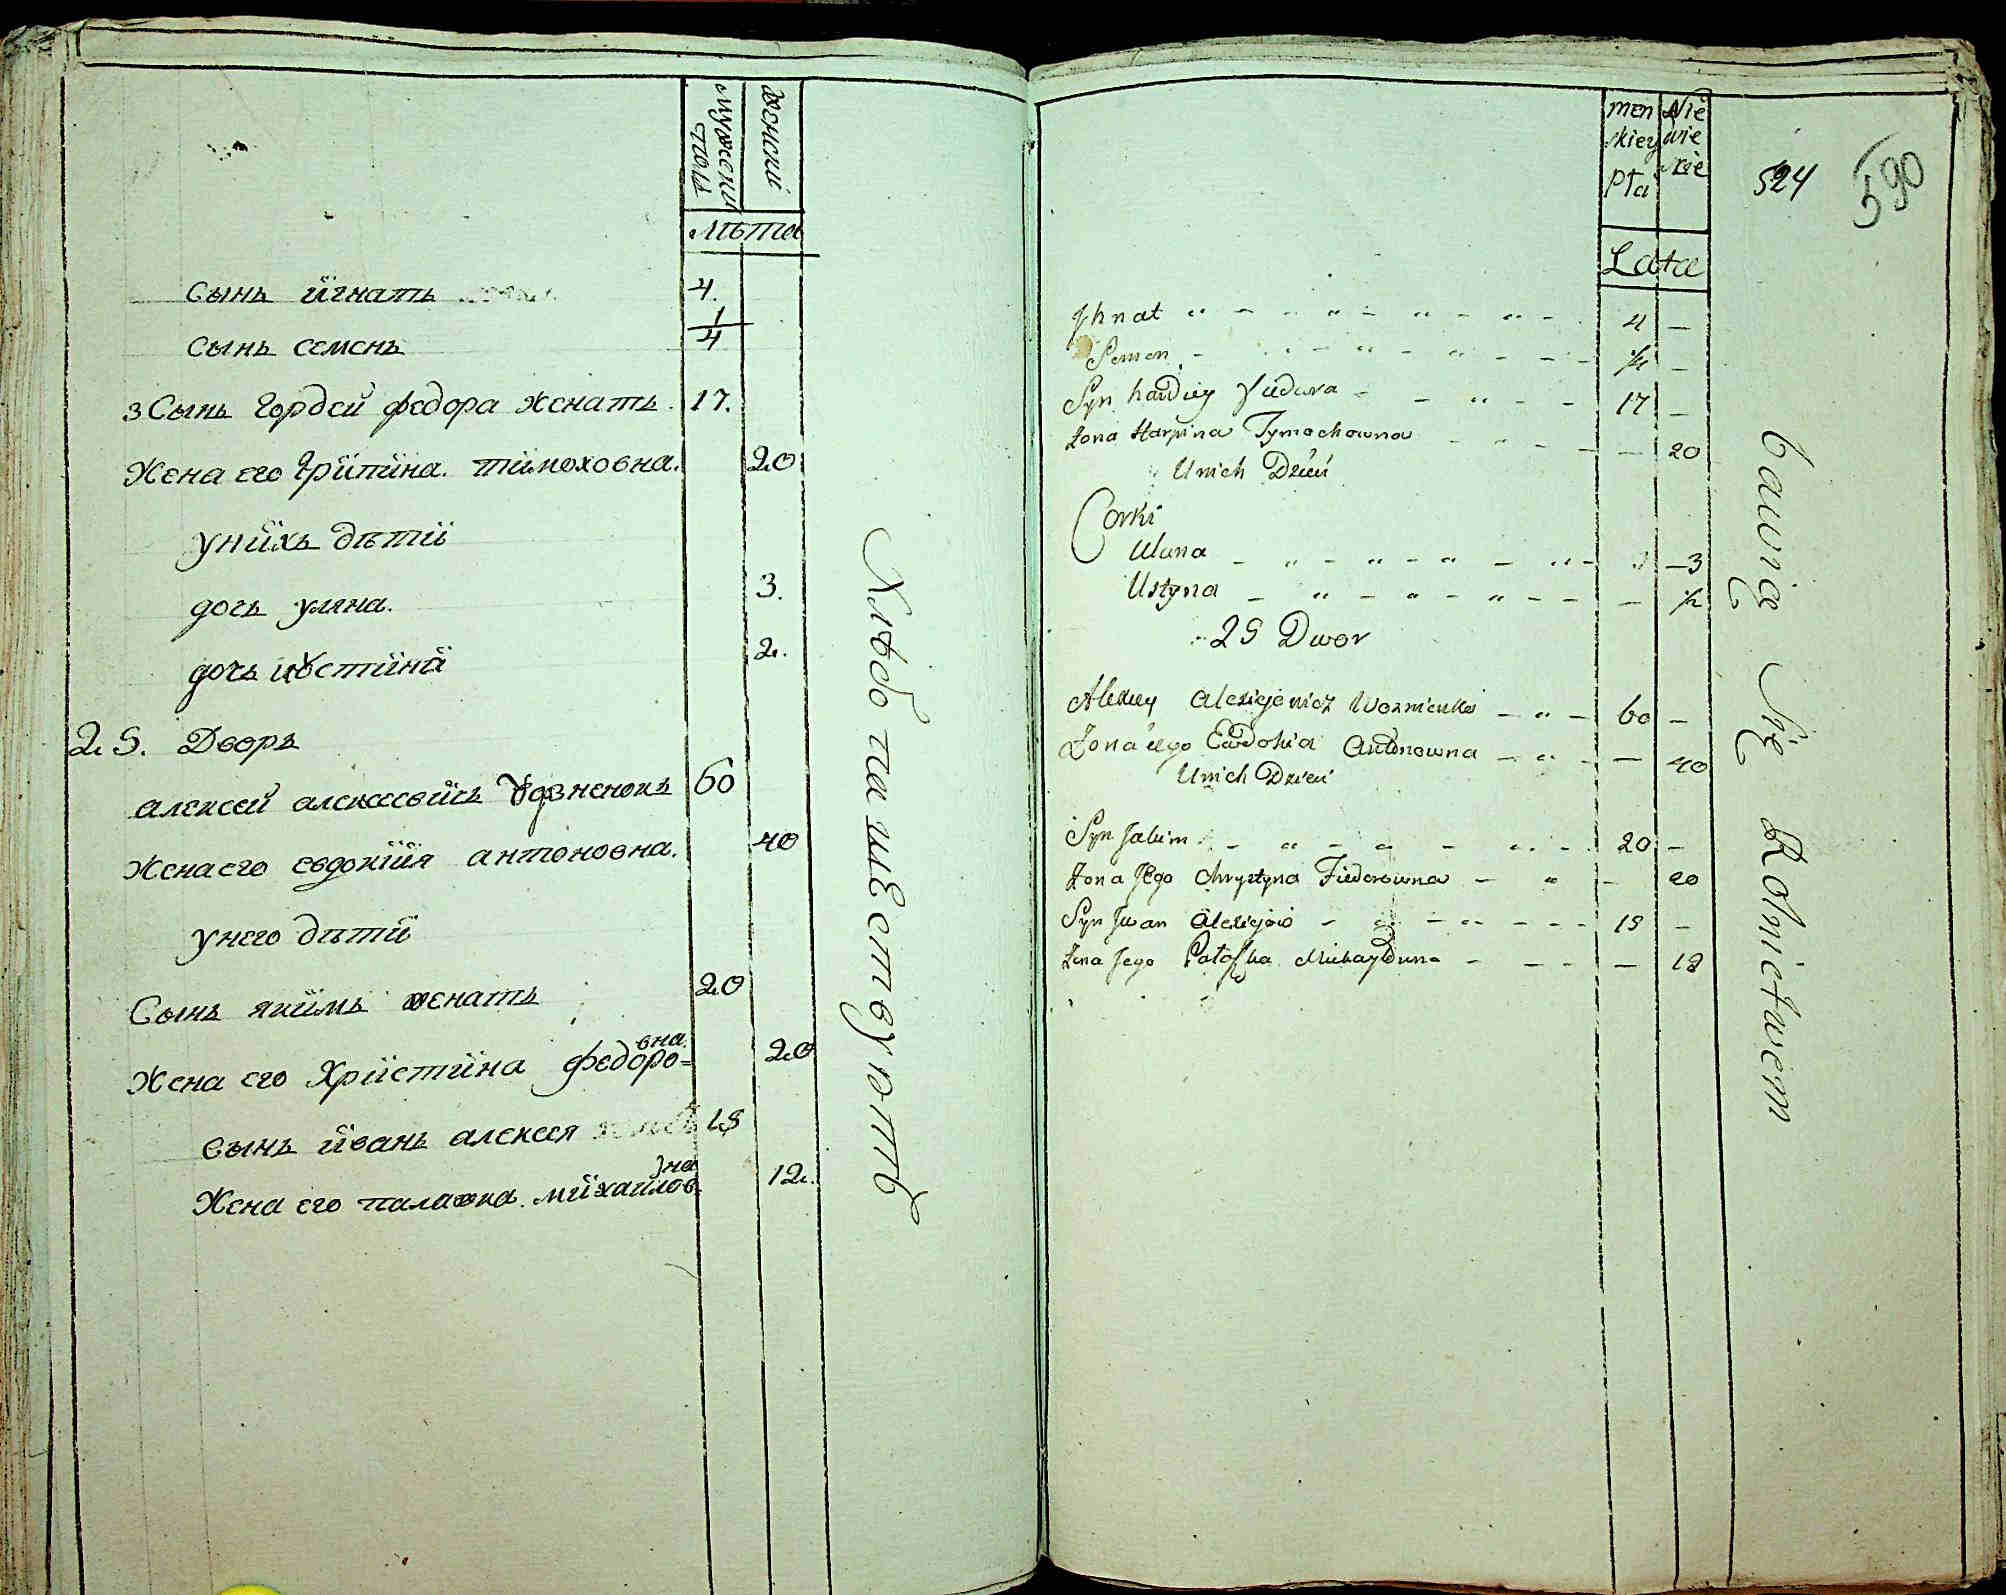 мужески пола
женски
лѣта
Сынъ игнатъ 4.
Сынъ семенъ 1/4
3 Сынъ Гордей федора женатъ. 17.
Жена его Грипина. тимоховна. 20
унихъ дѣти
дочь уляна. 3.
дочь иустина 2.
25. Дворъ
алексей алексеевичъ 60
Жена его евдокия антоновна. 40
унего дѣти
Сынъ якимъ женатъ 20
Жена его Христина федоро=вна. 20
Сынъ иванъ алексея 18
Жена его палажка. михайловна 12.
Хлѣбопашествуютъ
men skiey Pta
Nie wie skie
524
590
Lata
Jhnat 4 —
Semen 1/4 —
Syn hardiey 17 —
Zona Harpina Tymochowna — 20
Unich Dzieci
Corki
Ulana — 3
Ustyna — 1/2
25 Dwor
Alexiey Alexiejewicz Woznienko 60 —
Zona iego Ewdokia Antonowna — 40
Unich Dzieci
Syn Jakim 20 —
Zona Jego Chrystyna Fiedorowna — 20
Syn Jwan Alexiejow 18 —
Zona Jego Palaszka — 12
bawią Się Rolnictwem